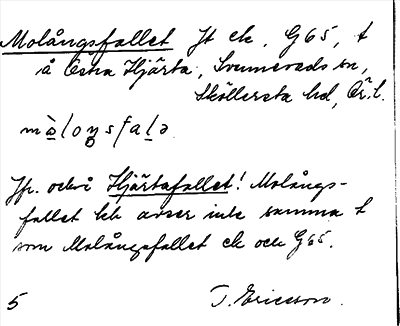 Molångsfallet Jt ek. G65, t
å Östra Hjärta, Svennevads sn,
Sköllersta hd, Ör. l.
mòloŋsfalə
Jfr. också Hjärtafallet! Molångs-
fallet bb avser inte samma t
som Molångsfallet ek och G65.
5 T. Ericsson.